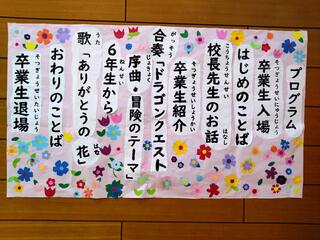 プログラム
卒業生入場
そつぎょうせいにゅうじょう
はじめのことば
校長先生のお話
こうちょうせんせい はなし
卒業生紹介
そつぎょうせいしょうかい
合奏「ドラゴンクエスト
がっそう
序曲・冒険のテーマ」
じょきょく ぼうけん
6年生から
ねんせい
歌「ありがとうの花」
うた はな
おわりのことば
卒業生退場
そつぎょうせいたいじょう